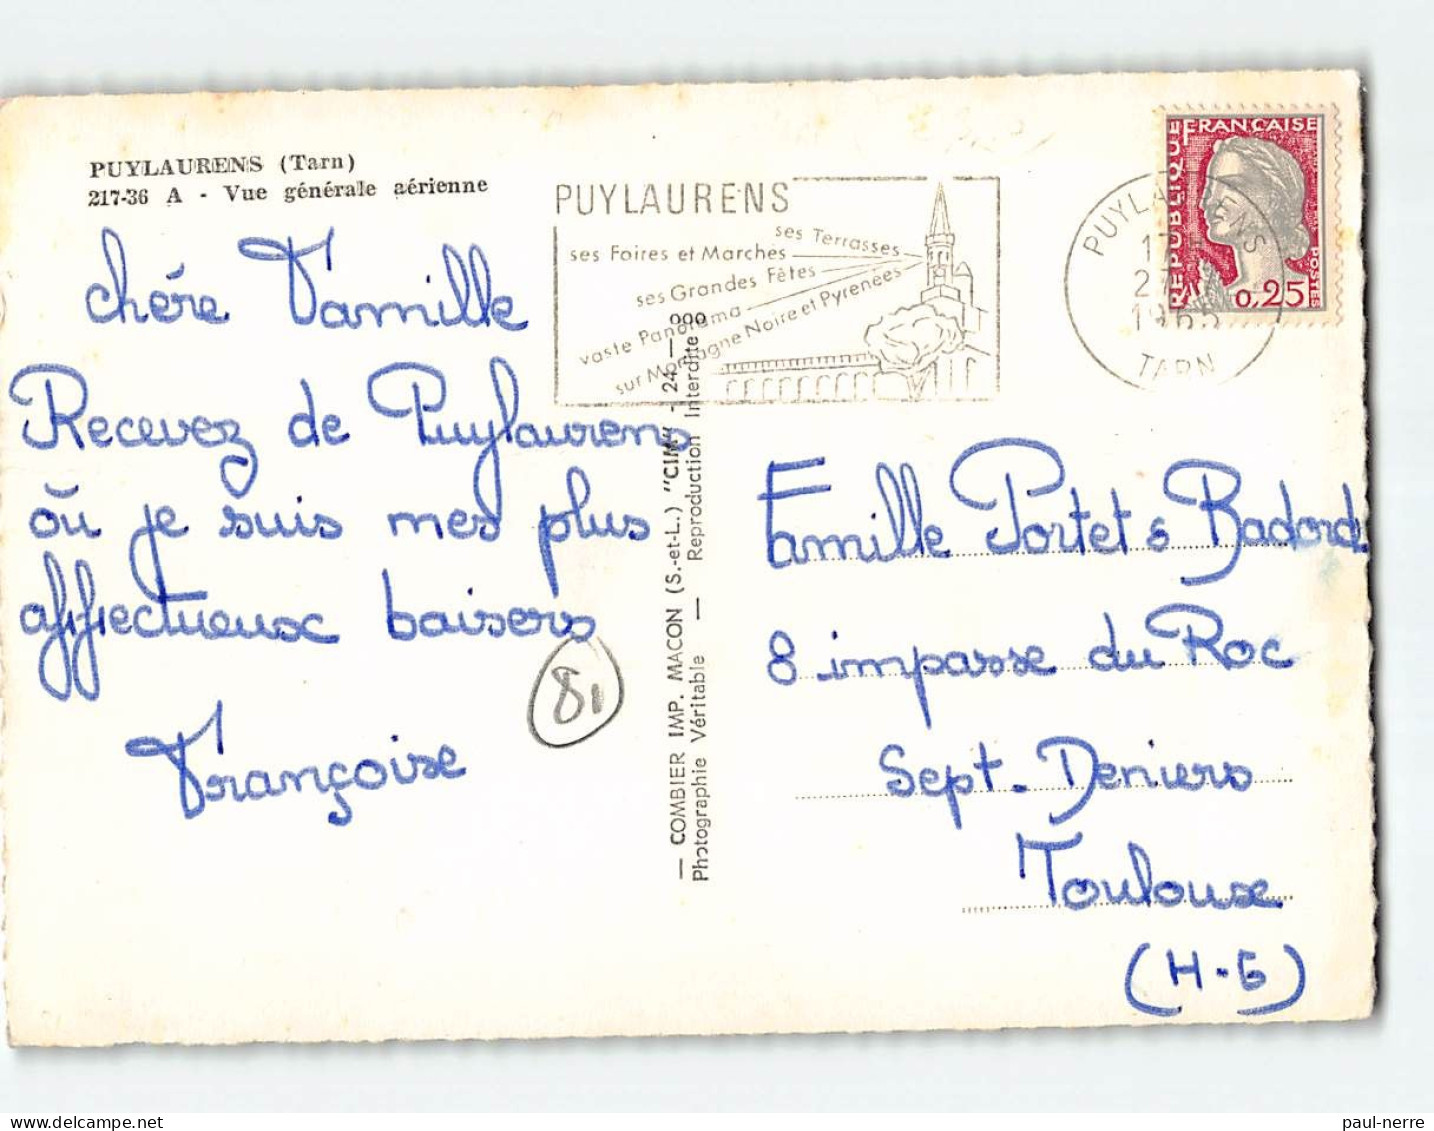 PUYLAURENS (Tarn)
217-36 A - Vue générale aérienne
chére Famille
Recevez de Puylaurens
òu je suis mes plus
affectueux baisers
Françoise
81
PUYLAURENS
ses Terrasses
ses Foires et Marchés
ses Grandes Fêtes
vaste Panorama
sur Montagne Noire et Pyrenées
— COMBIER IMP. MACON (S.-et-L.) "CIM"
Photographie Véritable — Reproduction Interdite
PUYLAURENS
1965
TARN
REPUBLIQUE FRANÇAISE
POSTES
0,25
Famille Portet & Badord
8 impasse du Roc
Sept-Deniers
Toulouse
(H-G)
paul-nerre